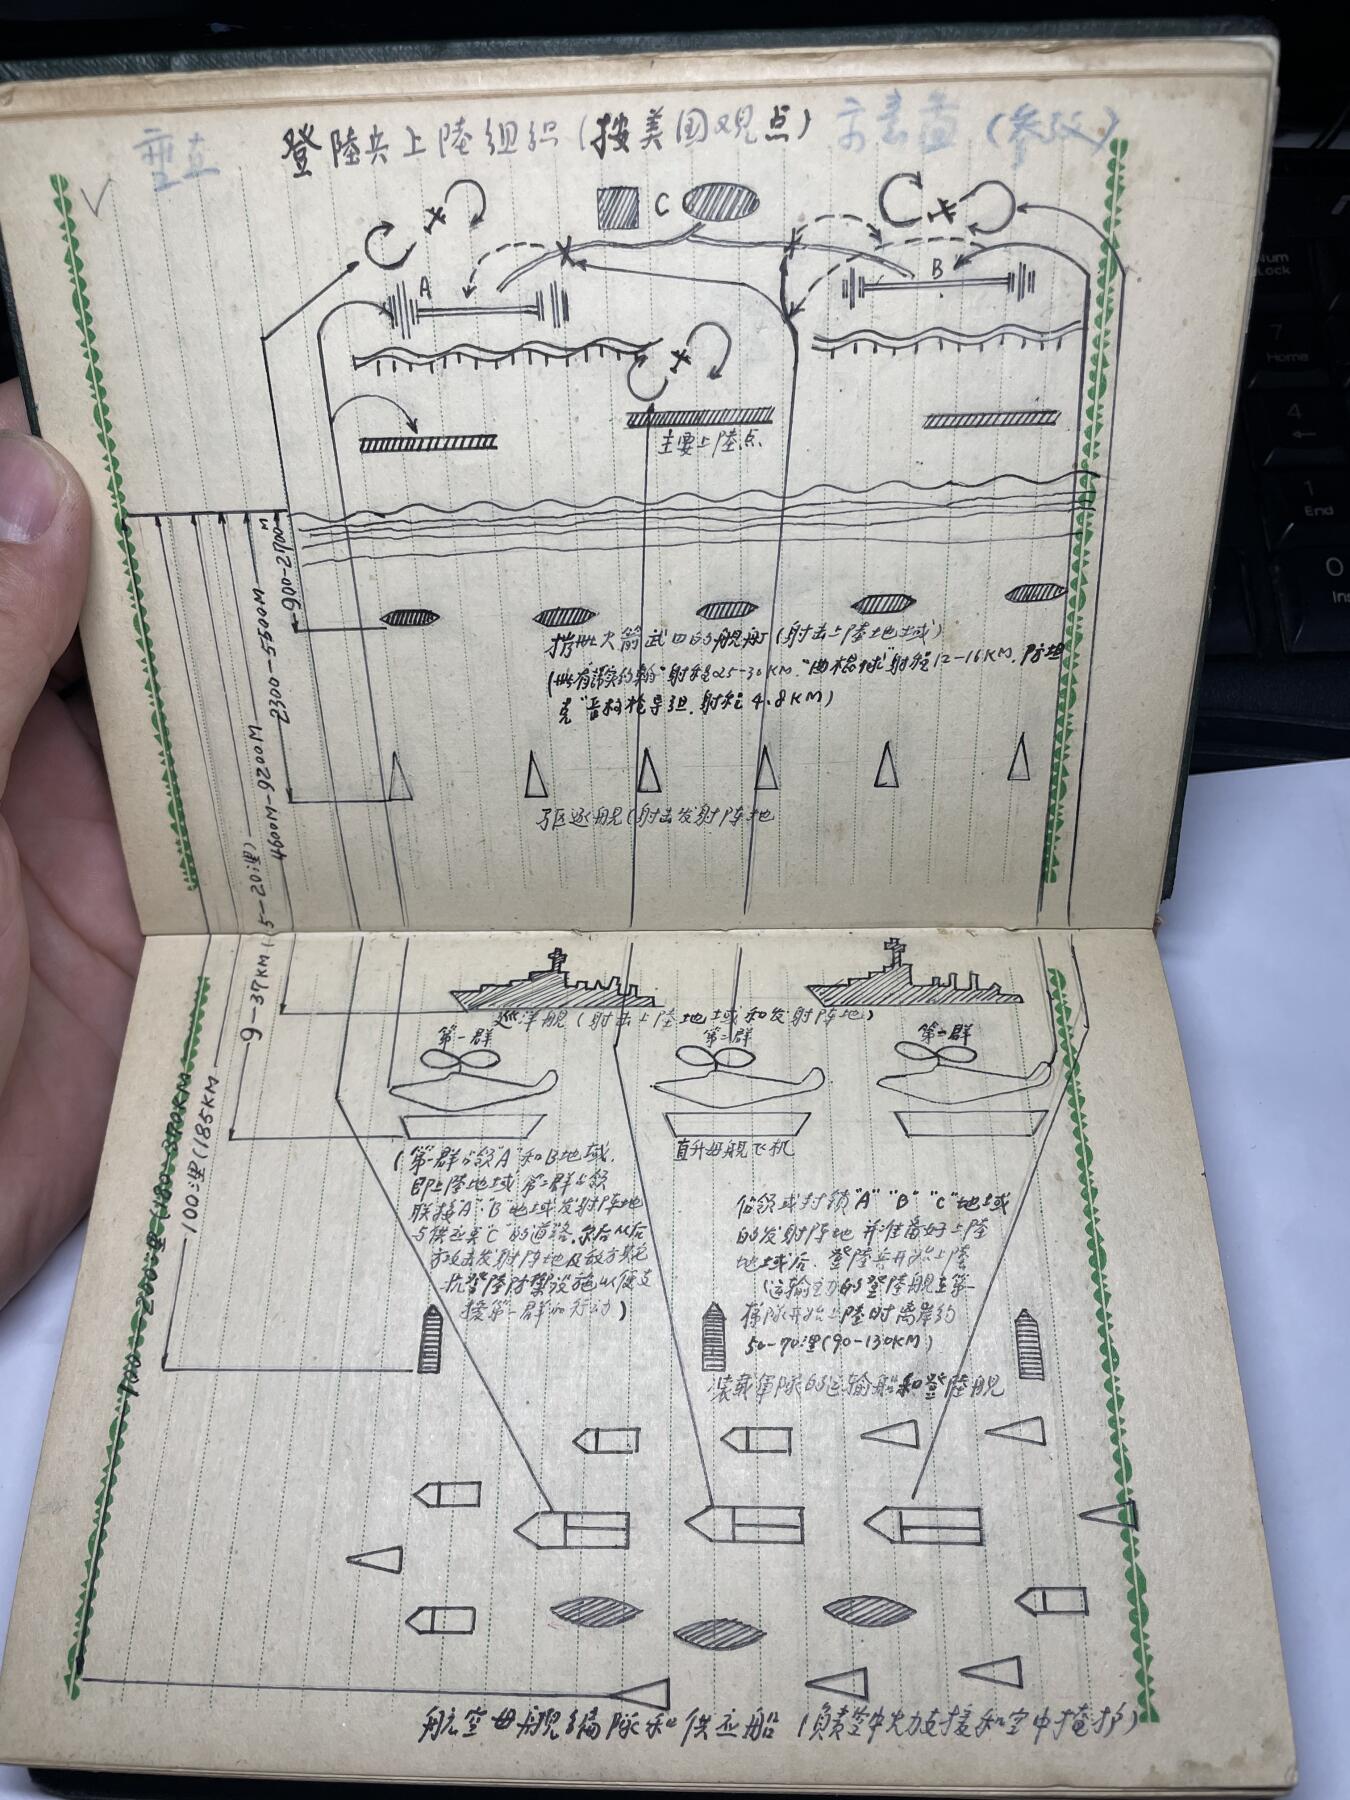 垂直 登陸兵上陸组织(按美国观点) 方案重(参改)
C
A
B
主要上陸点
900-2700M
2300-5500M
4600M-9200M
9-37KM(5-20浬)
100浬(185KM
100-200浬(180-370KM
火箭武口的舰艇(射击上陸地域)
射程25-30KM. "曲棍球"射程12-16KM. 防坦
克 导弹. 射程4.8KM)
驱逐舰(射击发射阵地
巡洋舰(射击上陸地域和发射阵地)
第一群
第二群
第一群
直升母舰飞机
(第一群占领"A"和B地域.
即上陸地域 第二群占领
联接"A"·"B"地域发射阵地
与供应美"C"的道路.
攻击发射阵地及敌方其它
抗登陸防禦设施以便支
援第一群的行动)
佔领或封锁"A" "B" "C"地域
的发射阵地 并准备好上陸
地域后. 登陸兵开始上陸
(运输主力的登陸舰在第一
梯队开始上陸时离岸约
50-70浬(90-130KM)
装载軍隊的运输船和登陸舰
航空母舰编隊和供应船(负责空中火力支援和空中掩护)